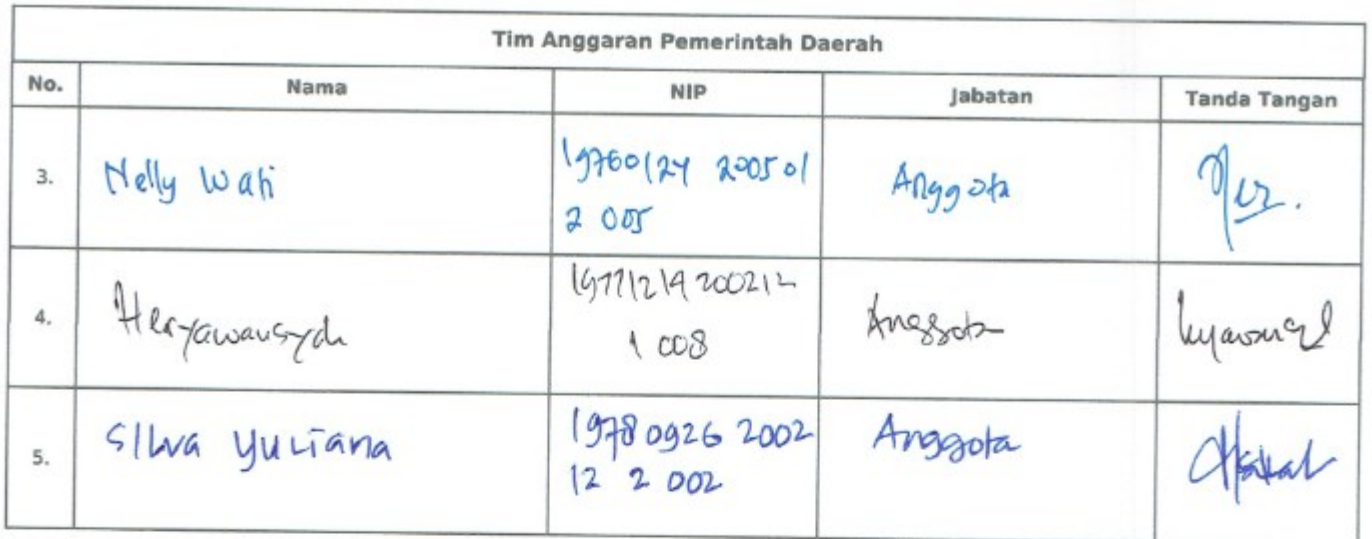 Tim Anggaran Pemerintah Daerah
No. Nama NIP Jabatan Tanda Tangan
3. Nelly Wati 19760124 200501 Anggota
2 005
4. Heryawansyah 19771219 200212 Anggota
1 008
5. Silva Yuliana 19780926 2002 Anggota
12 2 002